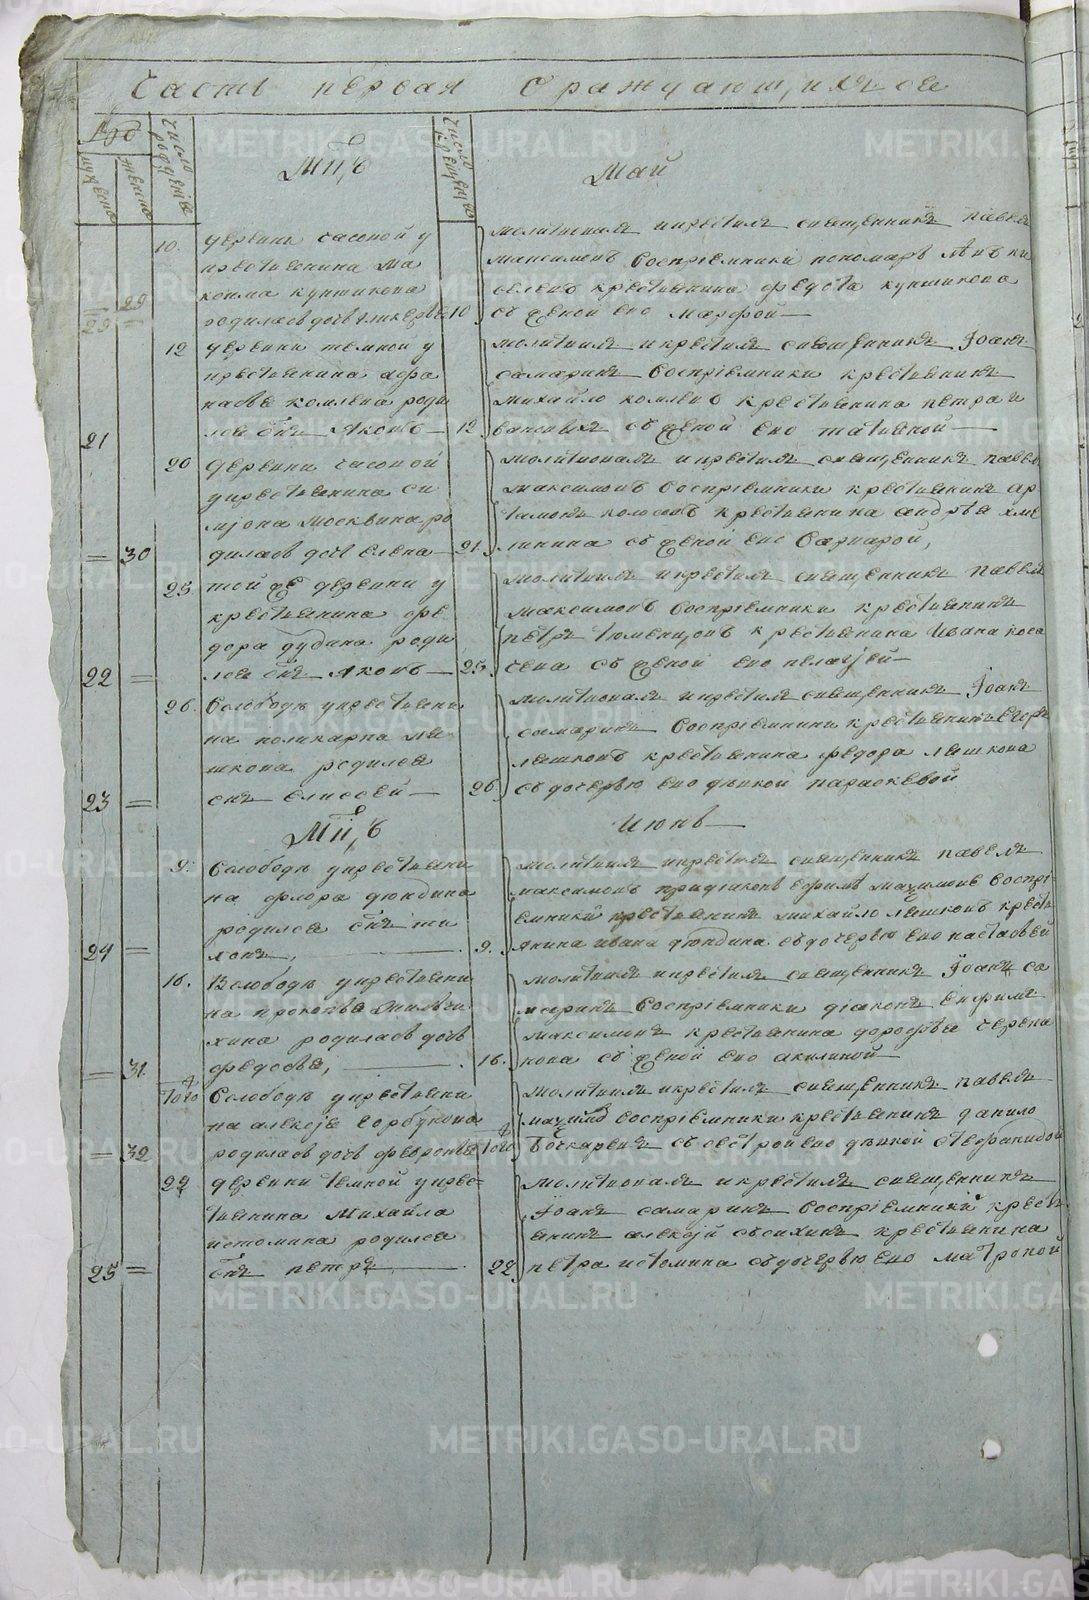 Часть первая О раждающихся
Мцъ Май
число рожденія
число крещенія
мужеска
женска
10. деревни часовой у
крестьянина Ма
ксима куптикова
29 родилась дочь гликерья 10
молитвовалъ икрестилъ священникъ павелъ
максимовъ воспріемники пономарь
крестьянина федота куптикова
съ женой ево марфой
12 деревни темной у
крестьянина афа
насья комлева роди
21 лся снъ Яковъ 12
молитвилъ икрестилъ священникъ Іоанъ
самаринъ воспріемники крестьянинъ
михайло комлевъ крестьянина петра и
съ женой ево татьяной
20 деревни часовой
укрестьянина си
міона москвина ро
30 дилась дочь елена 21
молитвовалъ икрестилъ священникъ павелъ
максимовъ воспріемники крестьянинъ ар
тамонъ колосовъ крестьянина андрея хме
линина съ женой ево варварой,
25 той же деревни у
крестьянина фе
дора дубина роди
22 лся снъ Яковъ 25
молитвилъ икрестилъ священникъ павелъ
максимовъ воспріемники крестьянинъ
петръ тюменцовъ крестьянина ивана коса
чева съ женой ево пелагіей
26. Вслободѣ укрестьяни
на поликарпа ля
шкова родился
23 снъ елисей 26
молитвовалъ икрестилъ священникъ Іоанъ
самаринъ воспріемники крестьянинъ егоръ
ляшковъ крестьянина федора ляшкова
съ дочерью ево дѣвкой параскевой
Мцъ Июнь
9. Вслободѣ укрестьяни
на флора дюндина
родился снъ ти
24 хонъ, 9.
молитвилъ икрестилъ священникъ павелъ
максимовъ придіаконѣ ефимѣ воспрі
емники крестьянинъ михайло ляшковъ кресть
янина ивана дюндина съдочерью ево настасьей
16. Вслободѣ укрестьяни
на прокопья
хина родилась дочь
31 федосья, 16.
молитвилъ икрестилъ священникъ Іоанъ са
маринъ воспріемники діаконъ ефимъ
максимовъ крестьянина дорофѣя червя
кова съ женой ево акилиной
Вслободѣ укрестьяни
на алексѣя горбунова
32 родилась дочь февронья
молитвилъ икрестилъ священникъ павелъ
воспріемники крестьянинъ данило
бочкаревъ съ сестрой ево дѣвкой степанидой
22 деревни темной укрес=
тьянина Михайла
истомина родился
25 снъ петръ 22
молитвовалъ икрестилъ священникъ
Іоанъ самаринъ воспріемники кресть
янинъ алексѣй крестьянина
петра истомина съдочерью ево матроной
METRIKI.GASO-URAL.RU